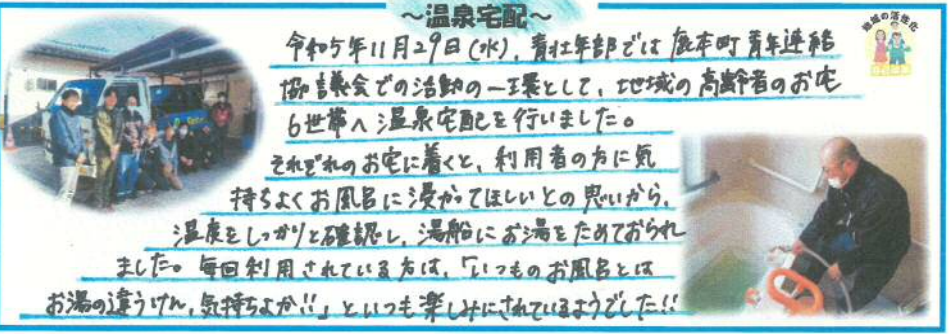 ～温泉宅配～
地域の活性化
令和5年11月29日(水)、青壮年部では鹿本町青年連絡
協議会での活動の一環として、地域の高齢者のお宅
6世帯へ温泉宅配を行いました。
それぞれのお宅に着くと、利用者の方に気
持ちよくお風呂に浸かってほしいとの思いから、
温度をしっかりと確認し、湯船にお湯をためておられ
ました。毎回利用されている方は、「いつものお風呂とは
お湯の違うけん、気持ちよか!!」といつも楽しみにされているようでした!!